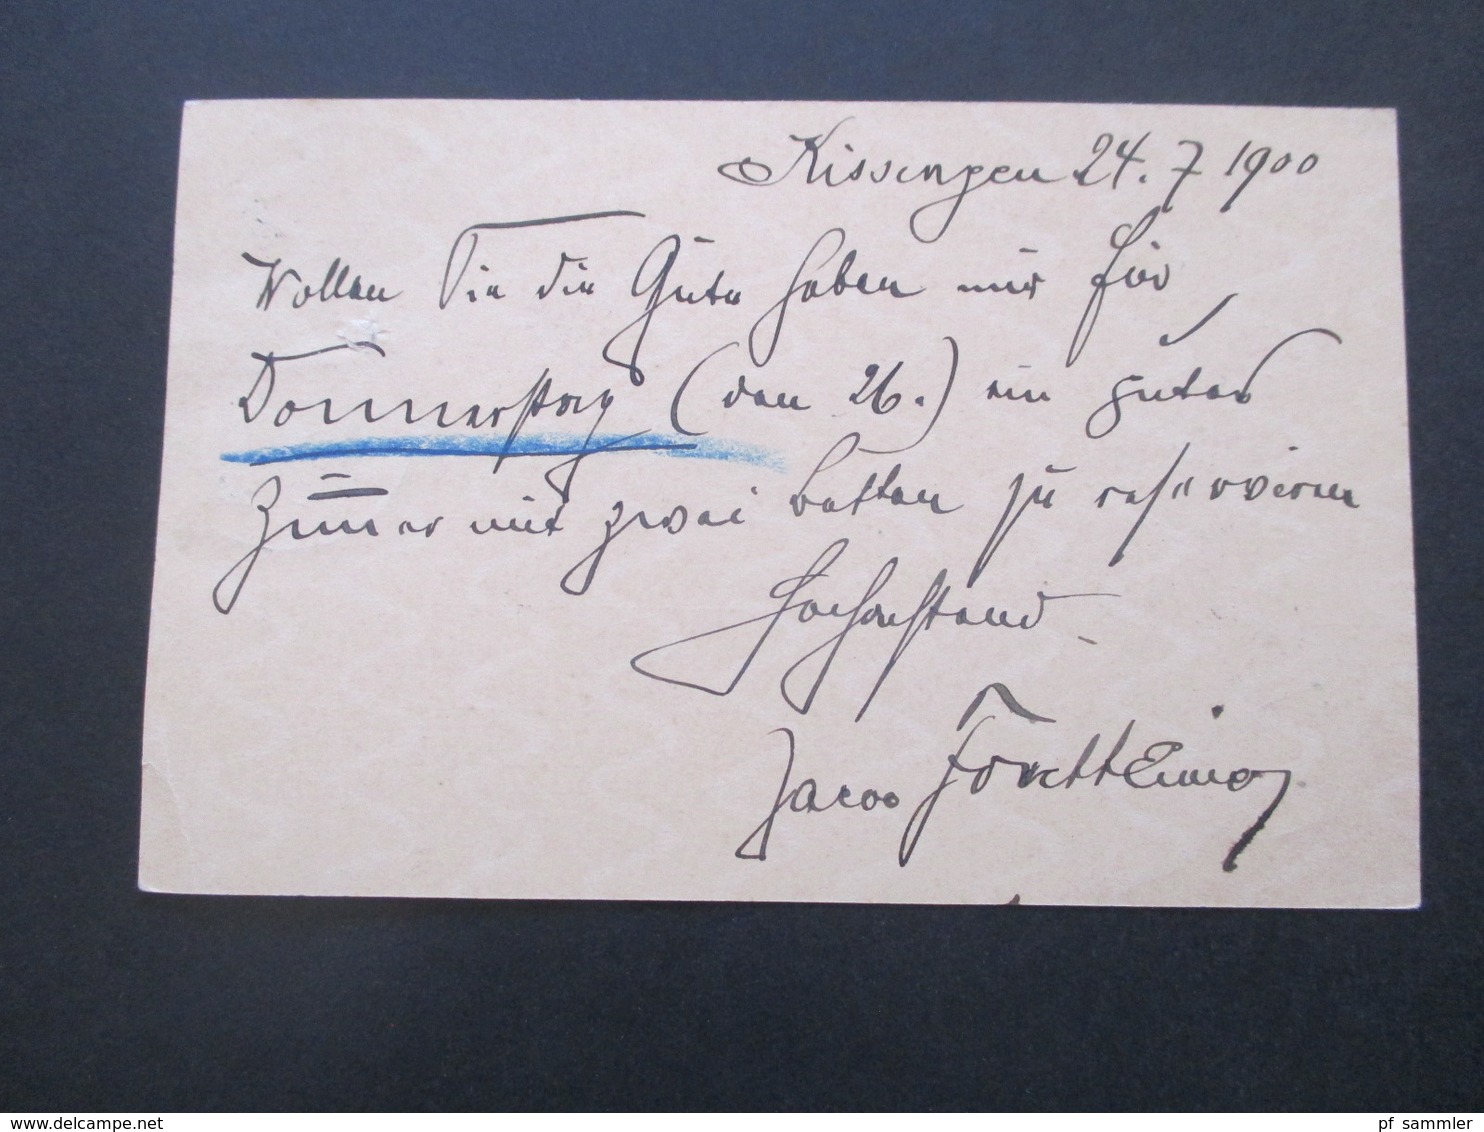 Kissingen 24. 7 1900
Wollen Sie die Güte haben mir für
Donnerstag (den 26.) ein gutes
Zim̅er mit zwei Betten zu reserviren
Hochachtend
Jacob
pf sammler